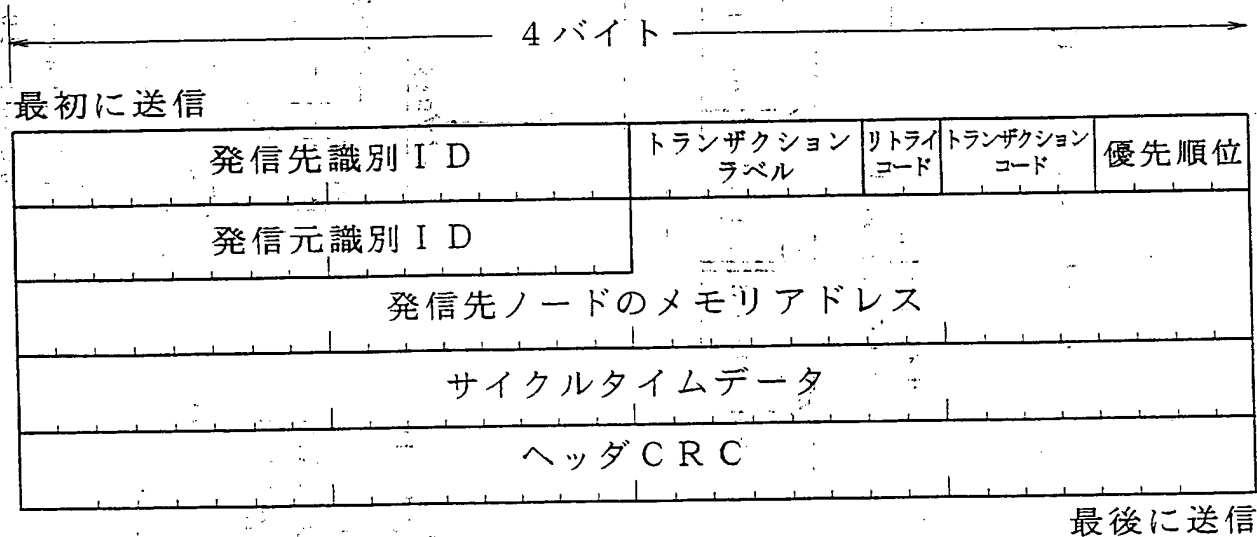 4バイト
最初に送信
発信先識別ID
トランザクション
ラベル
リトライ
コード
トランザクション
コード
優先順位
発信元識別ID
発信先ノードのメモリアドレス
サイクルタイムデータ
ヘッダCRC
最後に送信